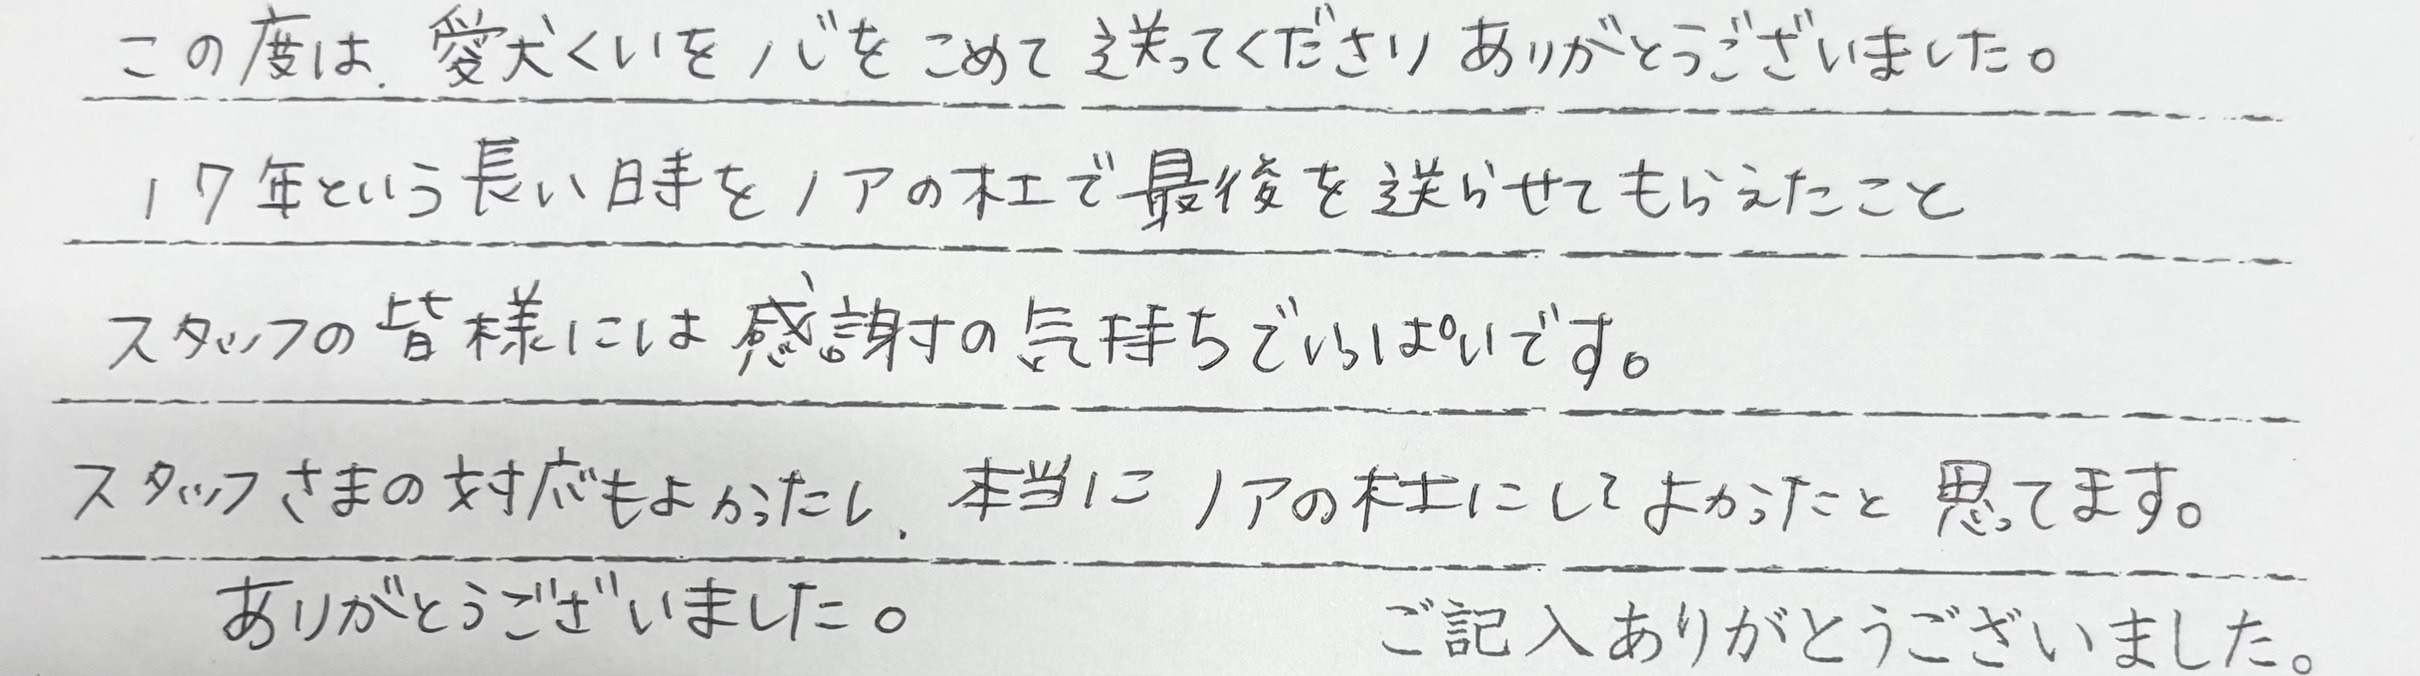 この度は、愛犬くいを心をこめて送ってくださりありがとうございました。
17年という長い時をノアの杜で最後を送らせてもらえたこと
スタッフの皆様には感謝の気持ちでいっぱいです。
スタッフさまの対応もよかったし、本当にノアの杜にしてよかったと思ってます。
ありがとうございました。
ご記入ありがとうございました。